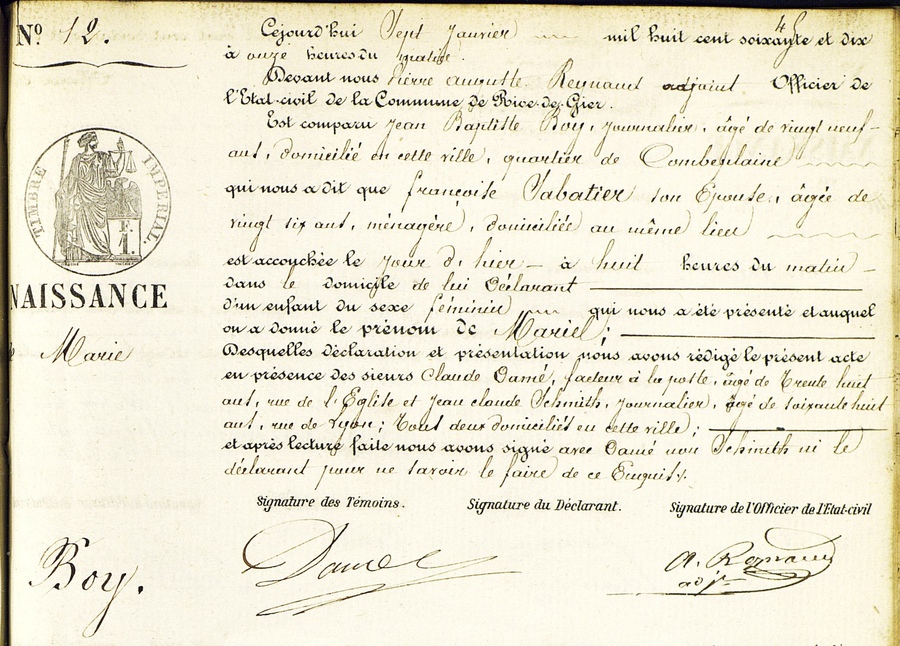 N.º 12.
Céjourd'hui Sept Janvier mil huit cent soixante et dix
à onze heures du matin.
Devant nous Pierre Auguste Reynaud adjoint Officier de
l'Etat-civil de la Commune de Rive-de-Gier.
Est comparu Jean Baptiste Boy, Journalier, âgé de vingt neuf
ans, domicilié en cette ville, quartier de Combeplaine
qui nous a dit que françoise Sabatier son Epouse, âgée de
vingt six ans, ménagère, domiciliés au même lieu
est accouchée le jour d'hier à huit heures du matin
dans le domicile de lui Déclarant
d'un enfant du sexe féminin qui nous a été présenté et auquel
on a donné le prénom de Marie;
Desquelles déclaration et présentation nous avons rédigé le présent acte
en présence des sieurs Claude Damé, facteur à la poste, âgé de Trente huit
ans, rue de l'Eglise et Jean claude Schmith, Journalier, âgé de soixante huit
ans, rue de Lyon; Tous deux domiciliés en cette ville;
et après lecture faite nous avons signé avec Damé non Schmith ni le
déclarant pour ne savoir le faire de ce Enquis.
TIMBRE IMPERIAL
F.
1.
NAISSANCE
Marie
Boy.
Signature des Témoins. Signature du Déclarant. Signature de l'Officier de l'Etat-civil
Damé A. Reynaud
adj.